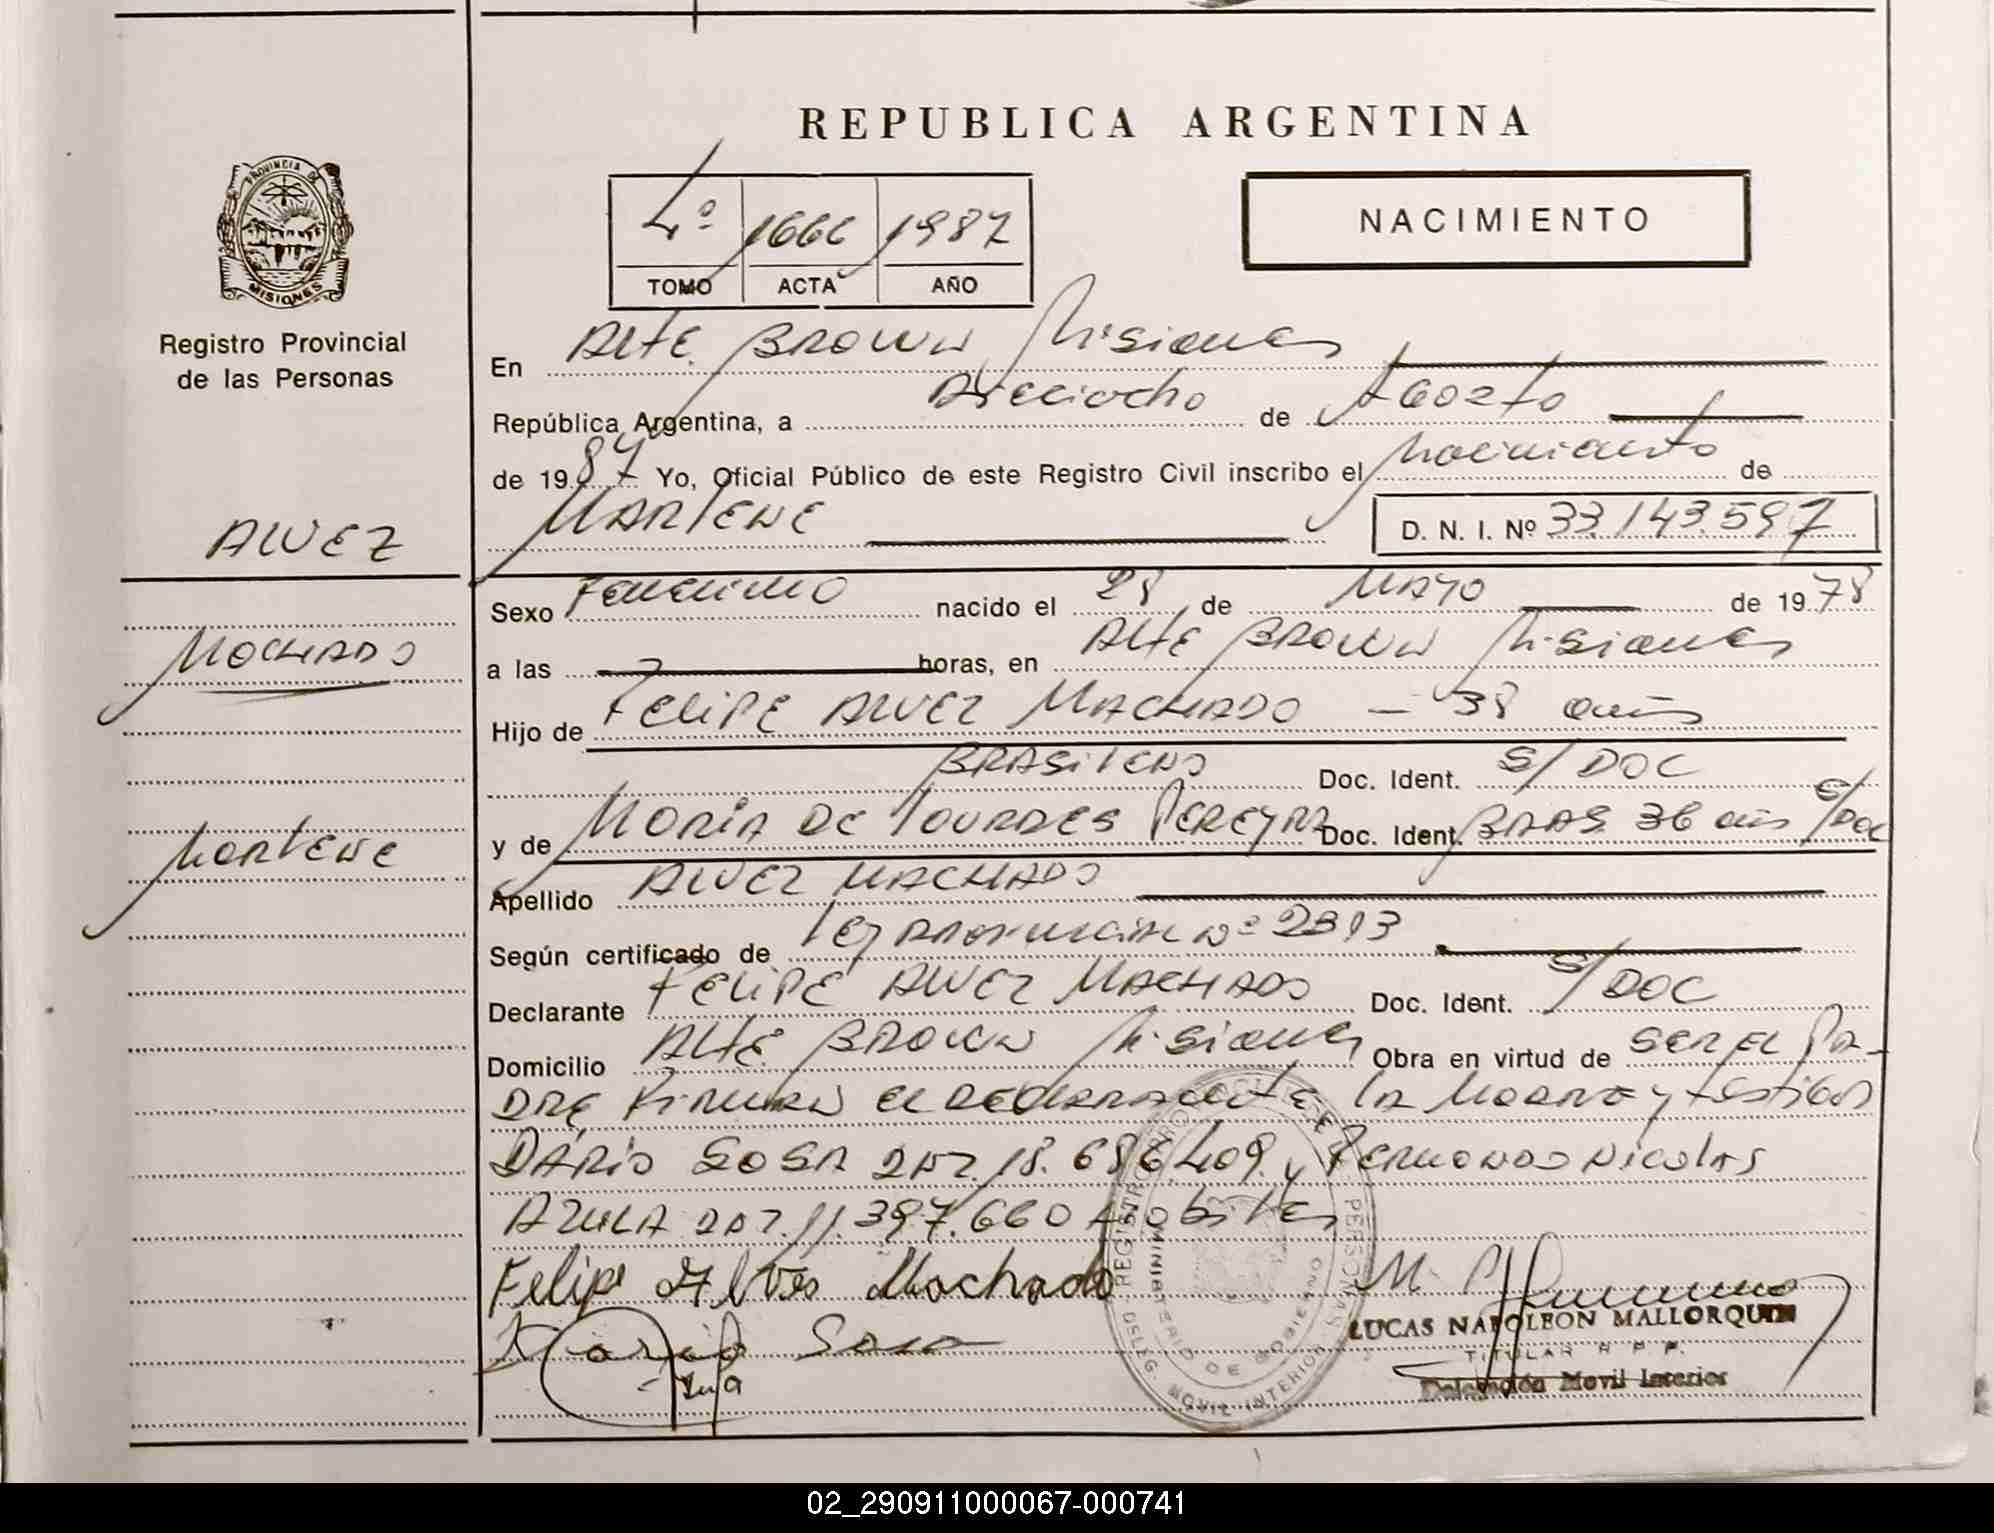 REPUBLICA ARGENTINA
PROVINCIA DE MISIONES
Registro Provincial
de las Personas
4º 1666 1987
TOMO ACTA AÑO
NACIMIENTO
En Alte. Brown Misiones
República Argentina, a Dieciocho de Agosto
de 1987 Yo, Oficial Público de este Registro Civil inscribo el nacimiento de
Marlene D. N. I. Nº 33.143.597
ALVEZ
MACHADO
Marlene
Sexo Femenino nacido el 28 de Mayo de 1978
a las horas, en Alte Brown Misiones
Hijo de Felipe Alvez Machado - 38 años
Brasileño Doc. Ident. S/DOC
y de Maria de Lourdes Pereyra Doc. Ident. Bras. 36 años S/Doc
Apellido Alvez Machado
Según certificado de Ley Nº 2393
Declarante Felipe Alvez Machado Doc. Ident. S/DOC
Domicilio Alte. Brown Misiones Obra en virtud de ser el Pa-
dre Firman el declarante la Madre y testigos
Dário Sosa 18.686.409 y Fernando Nicolas
11.397.660
Felipe Alves Machado
Dario Sosa
REGISTRO PROVINCIAL DE LAS PERSONAS
MINISTERIO DE GOBIERNO
DELEG. MOVIL INTERIOR
LUCAS NAPOLEON MALLORQUIN
TITULAR R P P.
Delegación Movil Interior
02_290911000067-000741